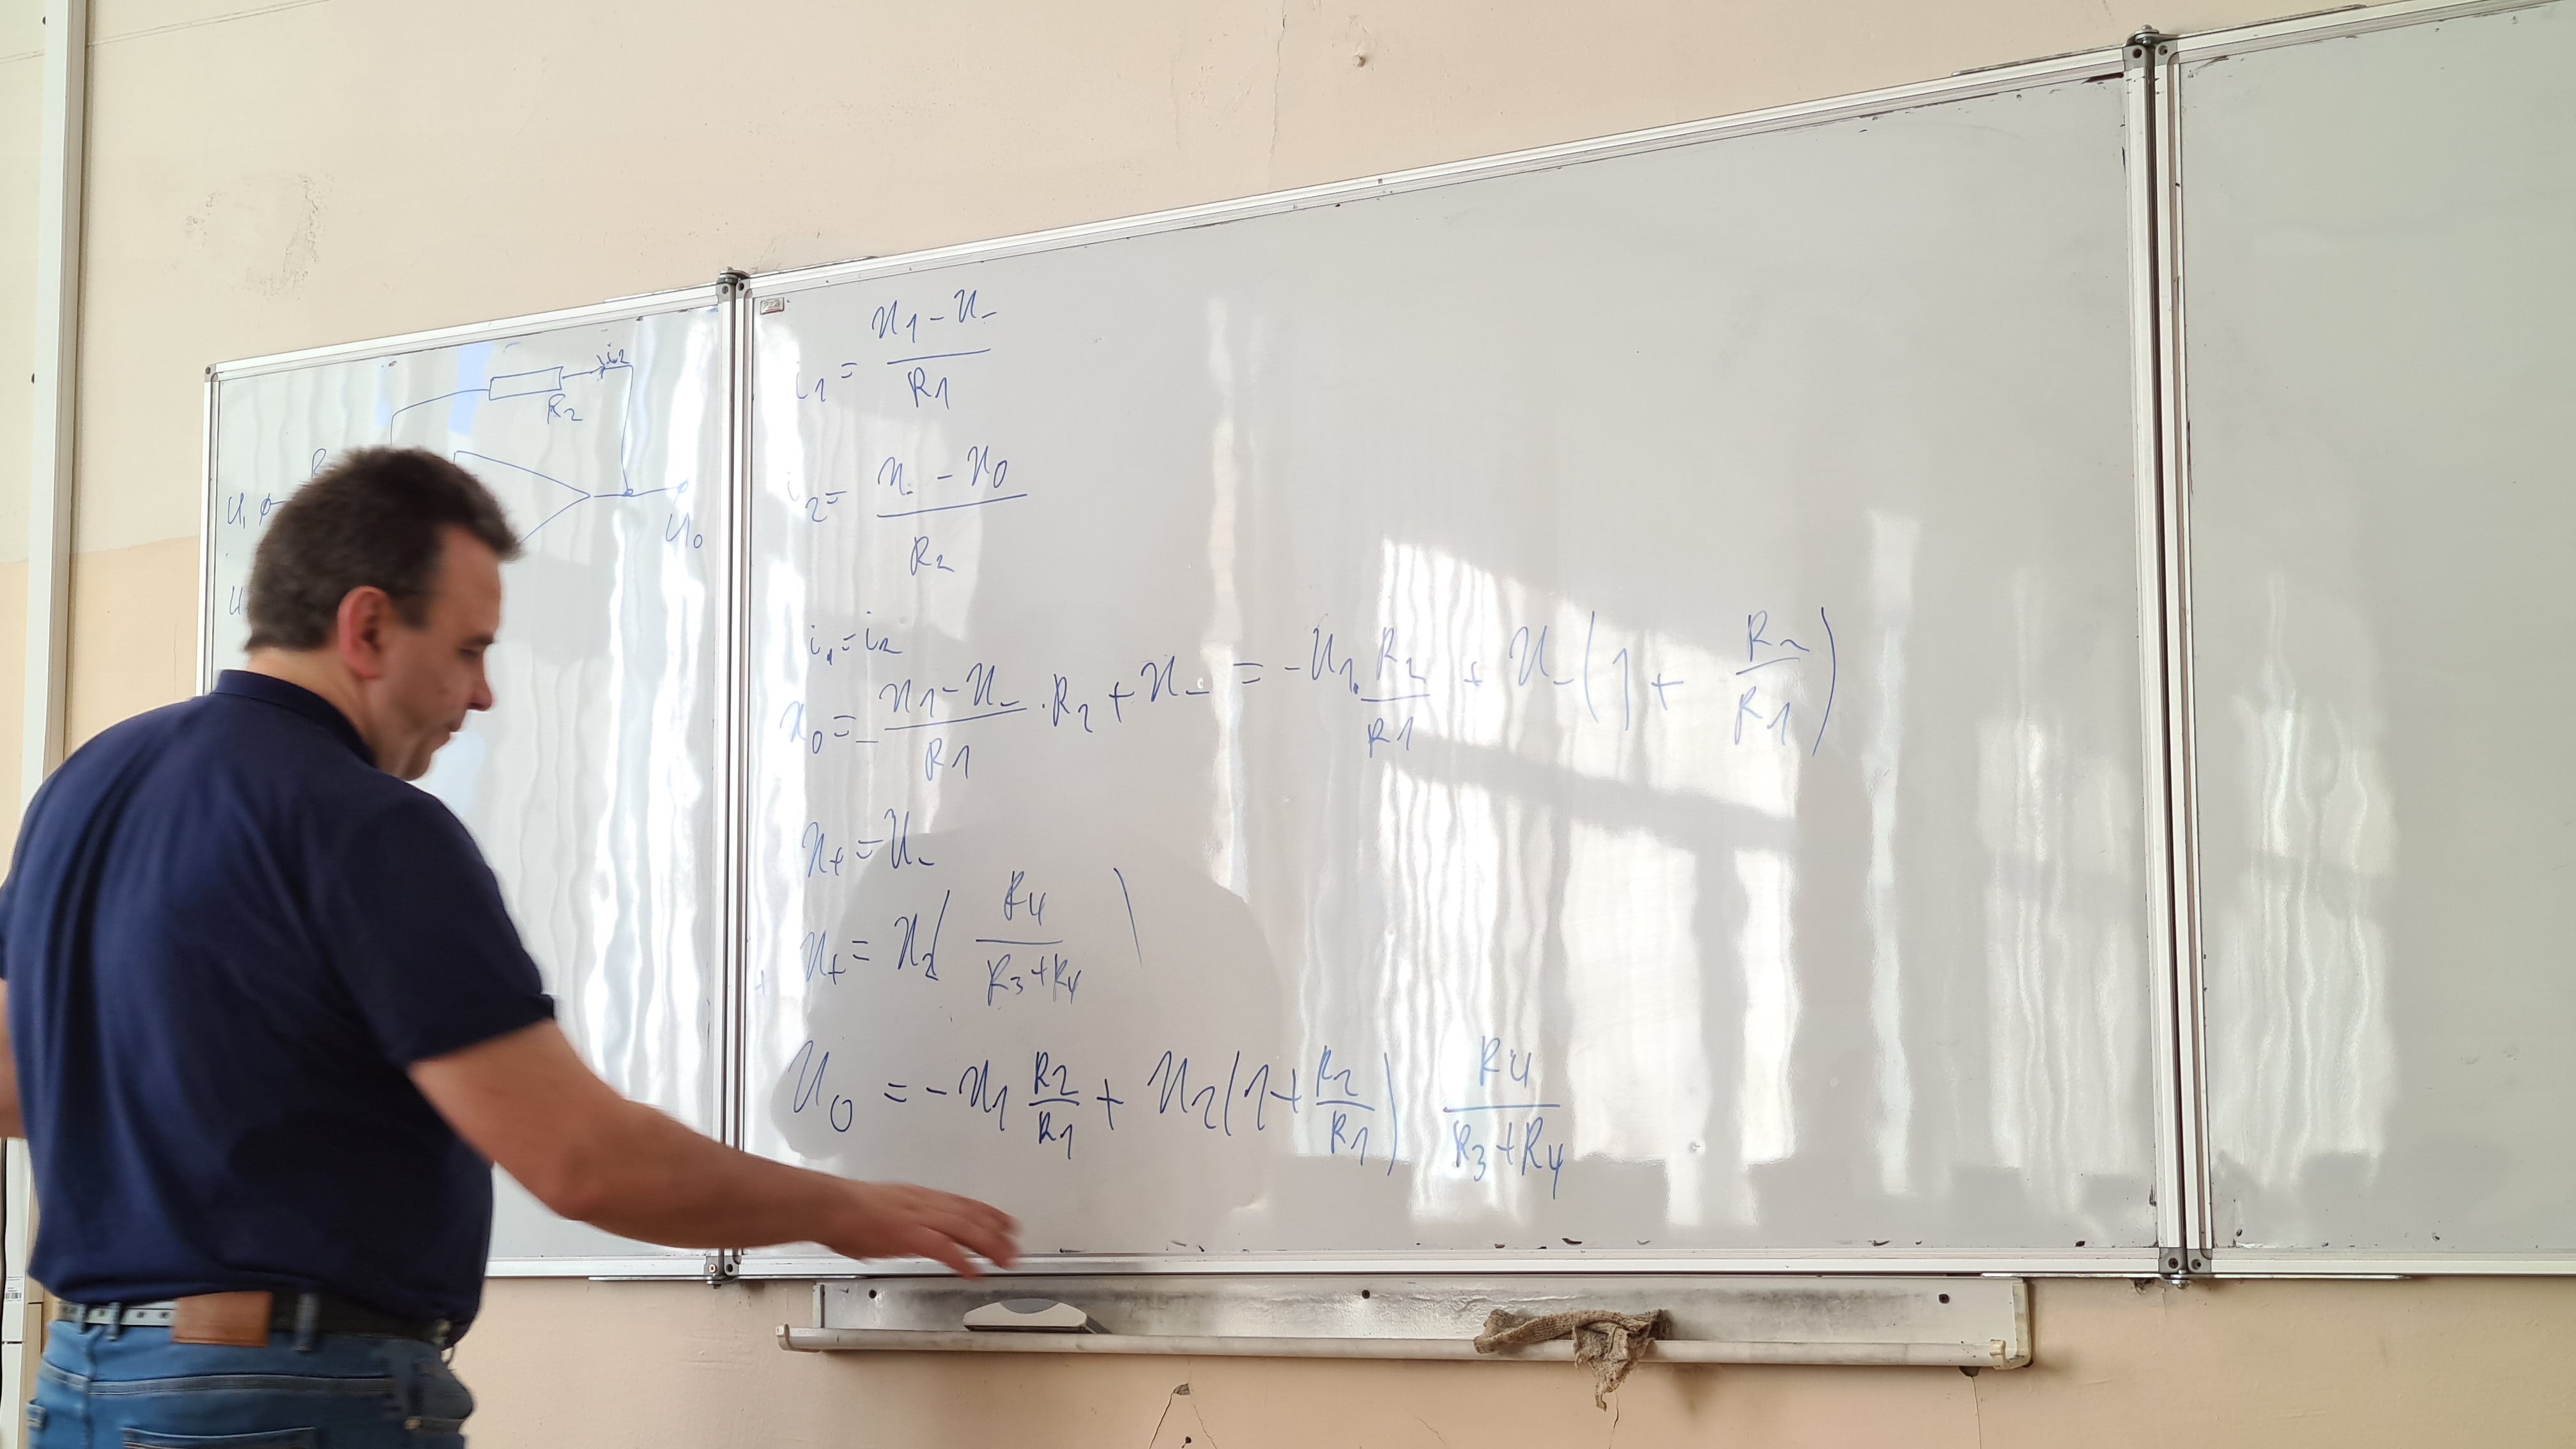 i2
R2
U1
U0
i1 = (U1 - U-) / R1
i2 = (U- - U0) / R2
i1 = i2
U0 = - (U1 - U-) / R1 · R2 + U- = - U1 · R2 / R1 + U- (1 + R2 / R1)
U+ = U-
U+ = U2 ( R4 / (R3 + R4) )
U0 = - U1 R2 / R1 + U2 (1 + R2 / R1) R4 / (R3 + R4)